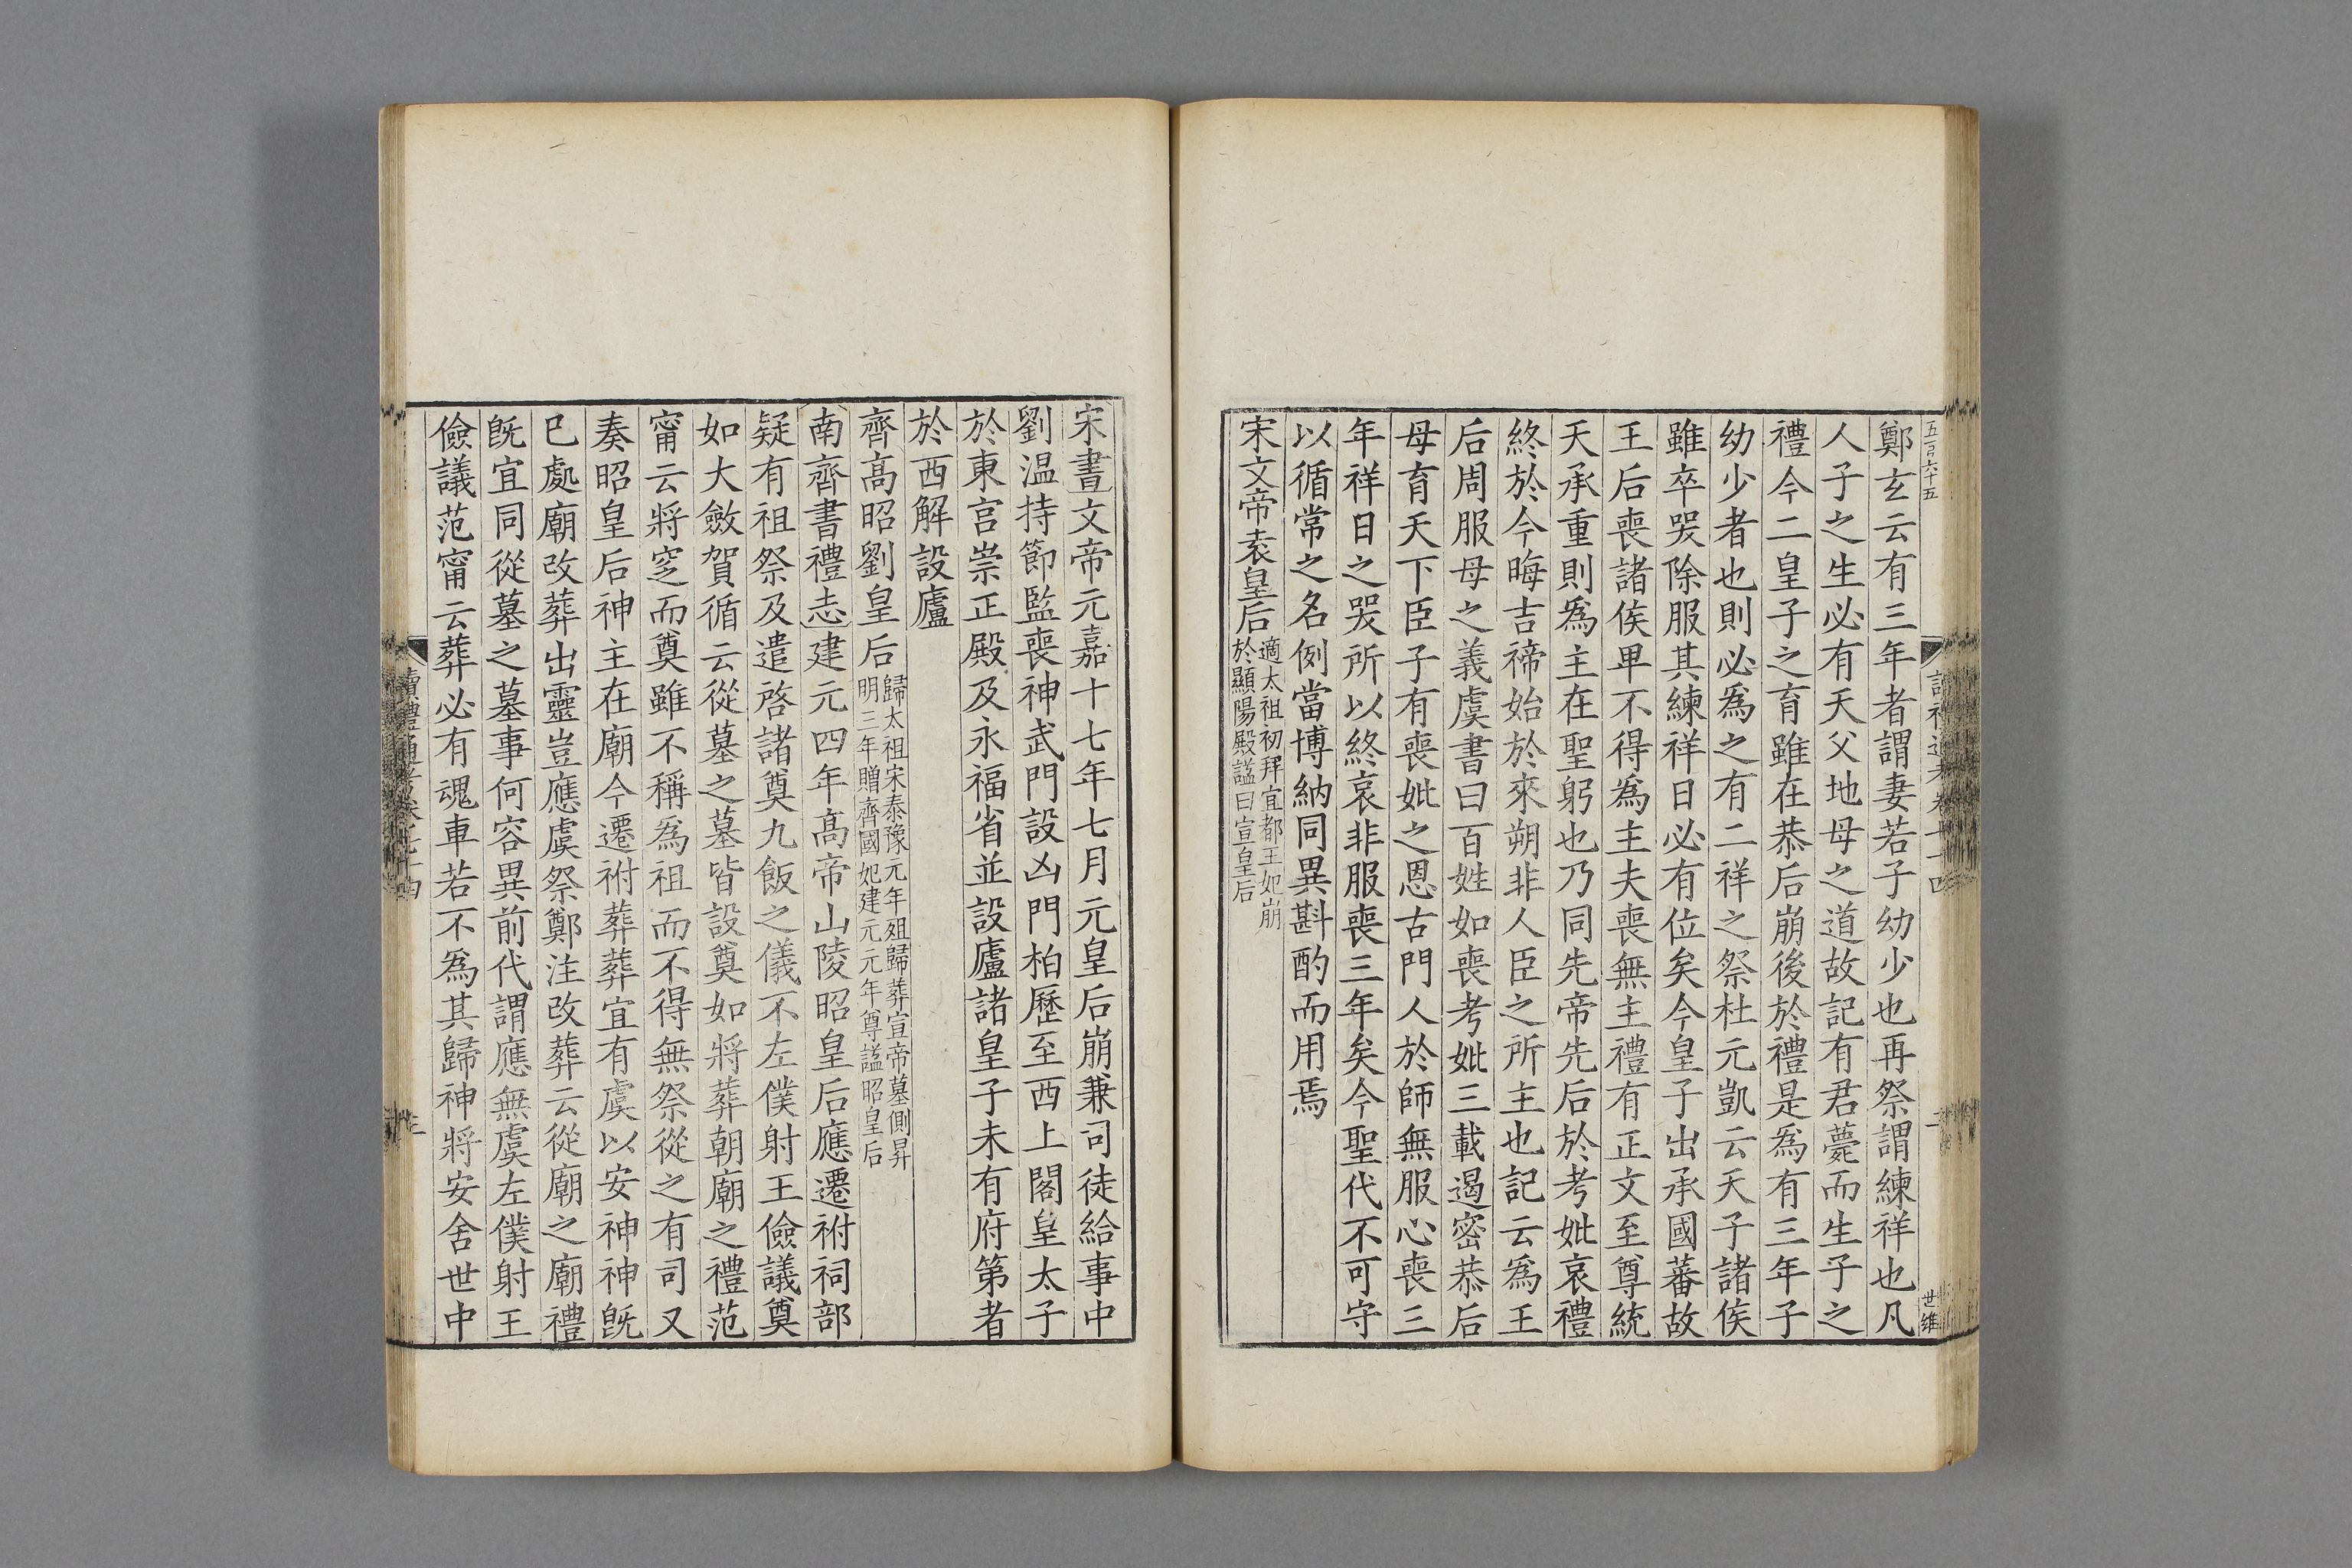 五百六十五
世維
鄭玄云有三年者謂妻若子幼少也再祭謂練祥也凡
人子之生必有天父地母之道故記有君薨而生子之
禮今二皇子之育雖在恭后崩後於禮是爲有三年子
幼少者也則必爲之有二祥之祭杜元凱云天子諸侯
雖卒哭除服其練祥日必有位矣今皇子出承國蕃故
王后喪諸侯卑不得爲主夫喪無主禮有正文至尊統
天承重則爲主在聖躬也乃同先帝先后於考妣哀禮
終於今晦吉禘始於來朔非人臣之所主也記云爲王
后周服母之義虞書曰百姓如喪考妣三載遏密恭后
母育天下臣子有喪妣之恩古門人於師無服心喪三
年祥日之哭所以終哀非服喪三年矣今聖代不可守
以循常之名例當博納同異斟酌而用焉
宋文帝袁皇后適太祖初拜宜都王妃崩
於顯陽殿諡曰宣皇后
宋書文帝元嘉十七年七月元皇后崩兼司徒給事中
劉温持節監喪神武門設凶門柏歷至西上閤皇太子
於東宫崇正殿及永福省並設廬諸皇子未有府第者
於西解設廬
齊高昭劉皇后歸太祖宋泰豫元年殂歸葬宣帝墓側昇
明三年贈齊國妃建元元年尊諡昭皇后
南齊書禮志建元四年高帝山陵昭皇后應遷祔祠部
疑有祖祭及遣啓諸奠九飯之儀不左僕射王儉議奠
如大斂賀循云從墓之墓皆設奠如將葬朝廟之禮范
甯云將窆而奠雖不稱爲祖而不得無祭從之有司又
奏昭皇后神主在廟今遷祔葬葬宜有虞以安神神旣
巳處廟改葬出靈豈應虞祭鄭注改葬云從廟之廟禮
旣宜同從墓之墓事何容異前代謂應無虞左僕射王
儉議范甯云葬必有魂車若不爲其歸神將安舍世中
讀禮通考卷七十四